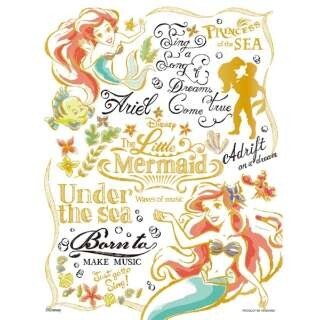 Sing a
Song of
Dreams
Come true
PRINCESS
of the SEA
Ariel
Disney
The Little
Mermaid
Adrift
on a dream
Under
the sea
Waves of music
Born to
MAKE MUSIC
Just gotta
Sing!
©Disney